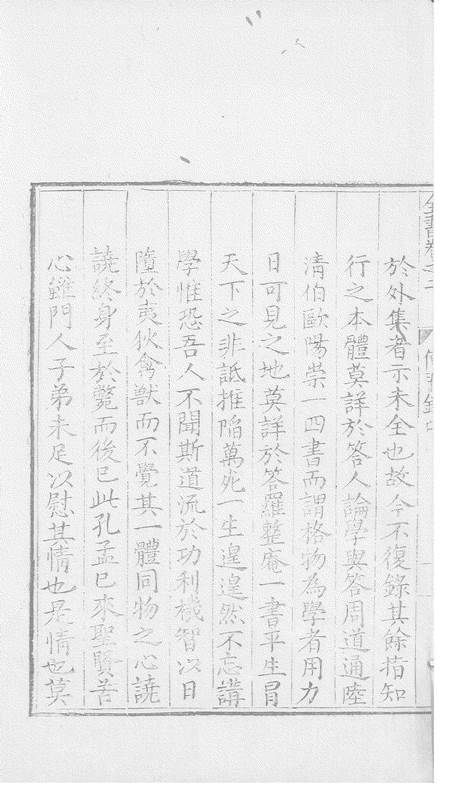 全書卷之二 傳習錄中
於外集者示未全也故今不復錄其餘指知
行之本體莫詳於答人論學與答周道通陸
清伯歐陽崇一四書而謂格物為學者用力
日可見之地莫詳於答羅整庵一書平生冒
天下之非詆推陷萬死一生遑遑然不忘講
學惟恐吾人不聞斯道流於功利機智以日
墮於夷狄禽獸而不覺其一體同物之心譊
譊終身至於斃而後已此孔孟已來聖賢苦
心雖門人子弟未足以慰其情也是情也莫